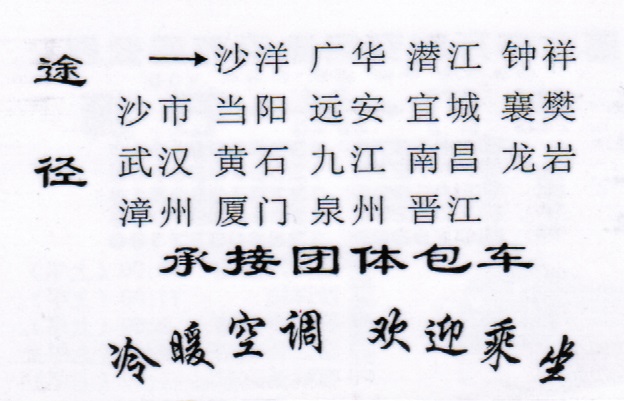 途径
→沙洋 广华 潜江 钟祥
沙市 当阳 远安 宜城 襄樊
武汉 黄石 九江 南昌 龙岩
漳州 厦门 泉州 晋江
承接团体包车
冷暖空调 欢迎乘坐